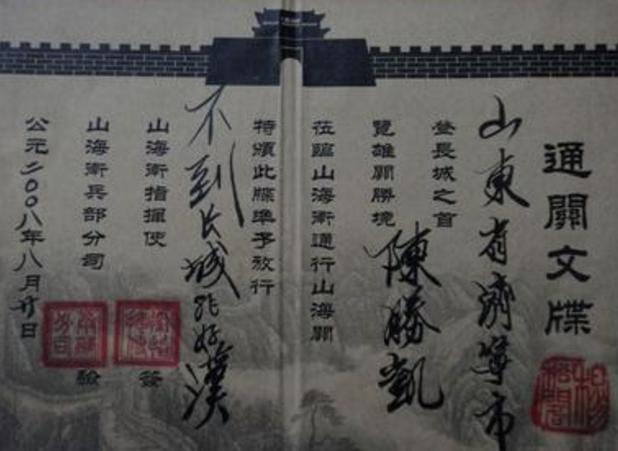 通關文牒
山東省濟寧市
登長城之首
覽雄關勝境
陳勝凱
莅臨山海衛通行山海關
特頒此牒準予放行
不到长城非好漢
山海衛指揮使 簽
山海衛兵部分司 驗
公元二〇〇八年八月廿日